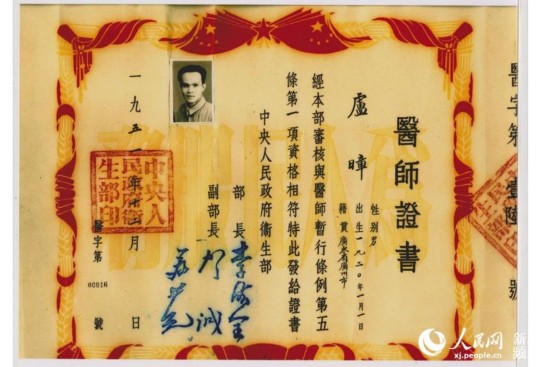 醫字第 壹陸 號
醫師證書
盧暲
性別男
出生一九二〇年一月一日
籍貫廣東省廣州市
經本部審核與醫師暫行條例第五
條第一項資格相符特此發給證書
中央人民政府衛生部
部長 李德全
副部長 賀誠
蘇井觀
一九五一年十二月 日
中央人民政府衛生部印
醫字第 00016 號
人民网 新疆
xj.people.cn